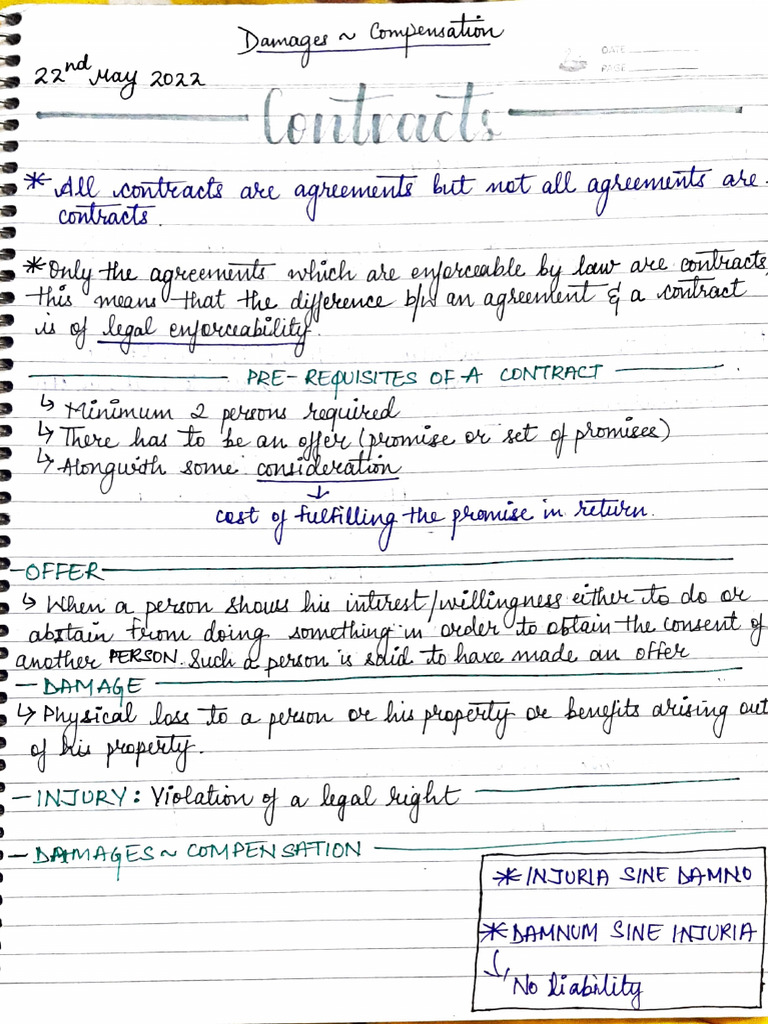 Damages ~ Compensation
DATE
PAGE
22nd May 2022
Contracts
* All contracts are agreements but not all agreements are
contracts.
* Only the agreements which are enforceable by law are contracts,
this means that the difference b/w an agreement & a contract
is of legal enforceability.
PRE-REQUISITES OF A CONTRACT
↳ Minimum 2 persons required
↳ There has to be an offer (promise or set of promises)
↳ Alongwith some consideration
↓
cost of fulfilling the promise in return.
- OFFER
↳ When a person shows his interest/willingness either to do or
abstain from doing something in order to obtain the consent of
another PERSON. Such a person is said to have made an offer
- DAMAGE
↳ Physical loss to a person or his property or benefits arising out
of his property.
- INJURY: Violation of a legal right
- DAMAGES ~ COMPENSATION
* INJURIA SINE DAMNO
* DAMNUM SINE INJURIA
↳ No liability